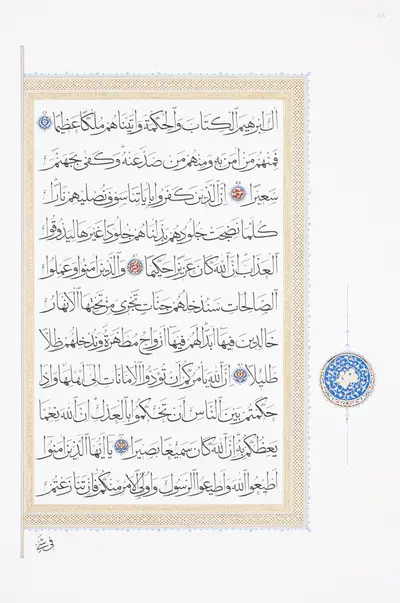 ال ابرهيم الكتاب والحكمة واتيناهم ملكا عظيما
فمنهم من امن به ومنهم من صد عنه وكفى بجهنم
سعيرا ان الذين كفروا باياتنا سوف نصليهم نارا
كلما نضجت جلودهم بدلناهم جلودا غيرها ليذوقوا
العذاب ان الله كان عزيزا حكيما والذين امنوا وعملوا
الصالحات سندخلهم جنات تجري من تحتها الانهار
خالدين فيها ابدا لهم فيها ازواج مطهرة وندخلهم ظلا
ظليلا ان الله يامركم ان تودوا الامانات الى اهلها واذا
حكمتم بين الناس ان تحكموا بالعدل ان الله نعما
يعظكم به ان الله كان سميعا بصيرا يا ايها الذين امنوا
اطيعوا الله واطيعوا الرسول واولي الامر منكم فان تنازعتم
في شيء